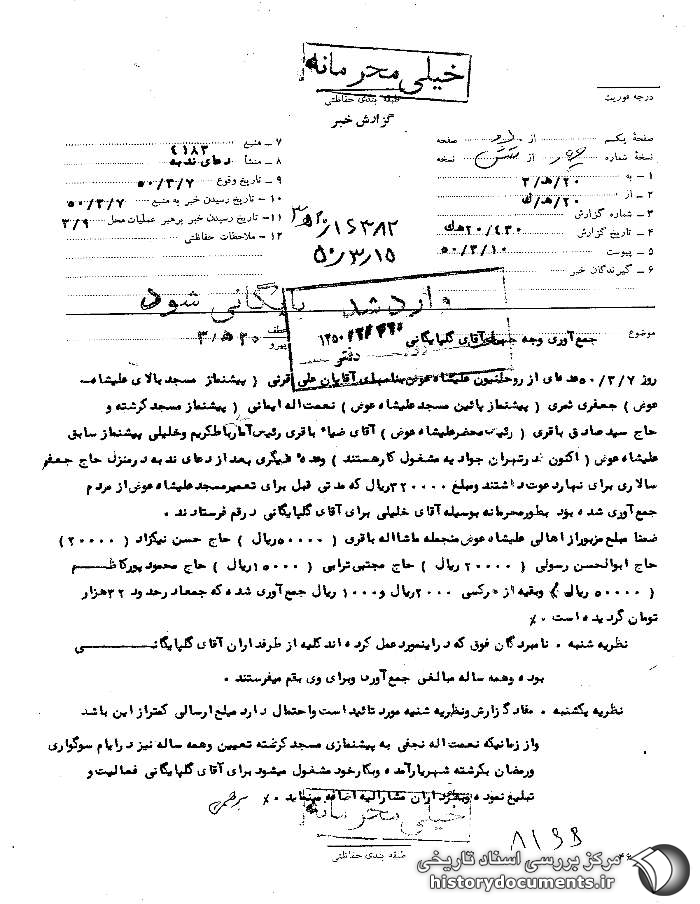 خیلی محرمانه
طبقه بندی حفاظتی
گزارش خبر
درجه فوریت
صفحهٔ یکم از دو صفحه
نسخهٔ شماره چهار از شش نسخه
۱ ـ به ۲۰/ه/۳
۲ ـ از ۲۰/ه/ك
۳ ـ شماره گزارش ۲۰/۴۳۰ه‍ك
۴ ـ تاریخ گزارش ۵۰/۳/۱۰
۵ ـ پیوست
۶ ـ گیرندگان خبر
۷ ـ منبع ۴۱۸۳
۸ ـ منشأ دعای ندبه
۹ ـ تاریخ وقوع ۵۰/۳/۷
۱۰ ـ تاریخ رسیدن خبر به منبع ۵۰/۳/۷
۱۱ ـ تاریخ رسیدن خبر برهبر عملیات محل ۳/۹
۱۲ ـ ملاحظات حفاظتی
۵۰/۳/۱۵
وارد شد بایگانی شود
موضوع جمع آوری وجه جهت آقای گلپایگانی
عطف
پیرو ۲۰ ه‍ ۳
دفتر
روز ۵۰/۳/۷ عده ای از روحانیون علیشاه عوض بنامهای آقایان علی قرنی ( پیشنماز مسجد بالای علیشاه
عوض ) جعفری ثمری ( پیشنماز پائین مسجد علیشاه عوض ) نعمت اله ایمانی ( پیشنماز مسجد کرشته و
حاج سید صادق باقری ( رئیس محضر علیشاه عوض ) آقای ضیاء باقری رئیس آمار رباط کریم وخلیلی پیشنماز سابق
علیشاه عوض ( اکنون در تهران جوادیه مشغول کار هستند ) وعده دیگری بعد از دعای ندبه در منزل حاج جعفر
سالاری برای نهار دعوت داشتند ومبلغ ۳۲۰۰۰۰ ریال که مدتی قبل برای تعمیر مسجد علیشاه عوض از مردم
جمع آوری شده بود بطور محرمانه بوسیله آقای خلیلی برای آقای گلپایگانی در قم فرستادند .
ضمنا مبلغ مزبور از اهالی علیشاه عوض منجمله ماشااله باقری ( ۵۰۰۰۰ ریال ) حاج حسن نیکزاد ( ۲۰۰۰۰ )
حاج ابوالحسن رسولی ( ۲۰۰۰۰ ریال ) حاج مجتبی ترابی ( ۱۵۰۰۰ ریال ) حاج محمود پورکاظم
( ۵۰۰۰۰ ریال ) وبقیه از هرکسی ۲۰۰۰ ریال و ۱۰۰۰ ریال جمع آوری شده که جمعا در حدود ۳۲ هزار
تومان گردیده است ٪
نظریه شنبه . نامبردگان فوق که در اینمورد عمل کرده اند کلیه از طرفداران آقای گلپایگانی
بوده وهمه ساله مبالغی جمع آوری وبرای وی بقم میفرستند .
نظریه یکشنبه . مفاد گزارش ونظریه شنبه مورد تائید است واحتمال دارد مبلغ ارسالی کمتر از این باشد
واز زمانیکه نعمت اله نجفی به پیشنمازی مسجد کرشته تعیین وهمه ساله نیز در ایام سوگواری
ورمضان بکرشته شهریار آمده وبکار خود مشغول میشود برای آقای گلپایگانی فعالیت و
تبلیغ نموده وبطرفداران مشارالیه اضافه مینماید ٪
خیلی محرمانه
طبقه بندی حفاظتی
مرکز بررسی اسناد تاریخی
historydocuments.ir